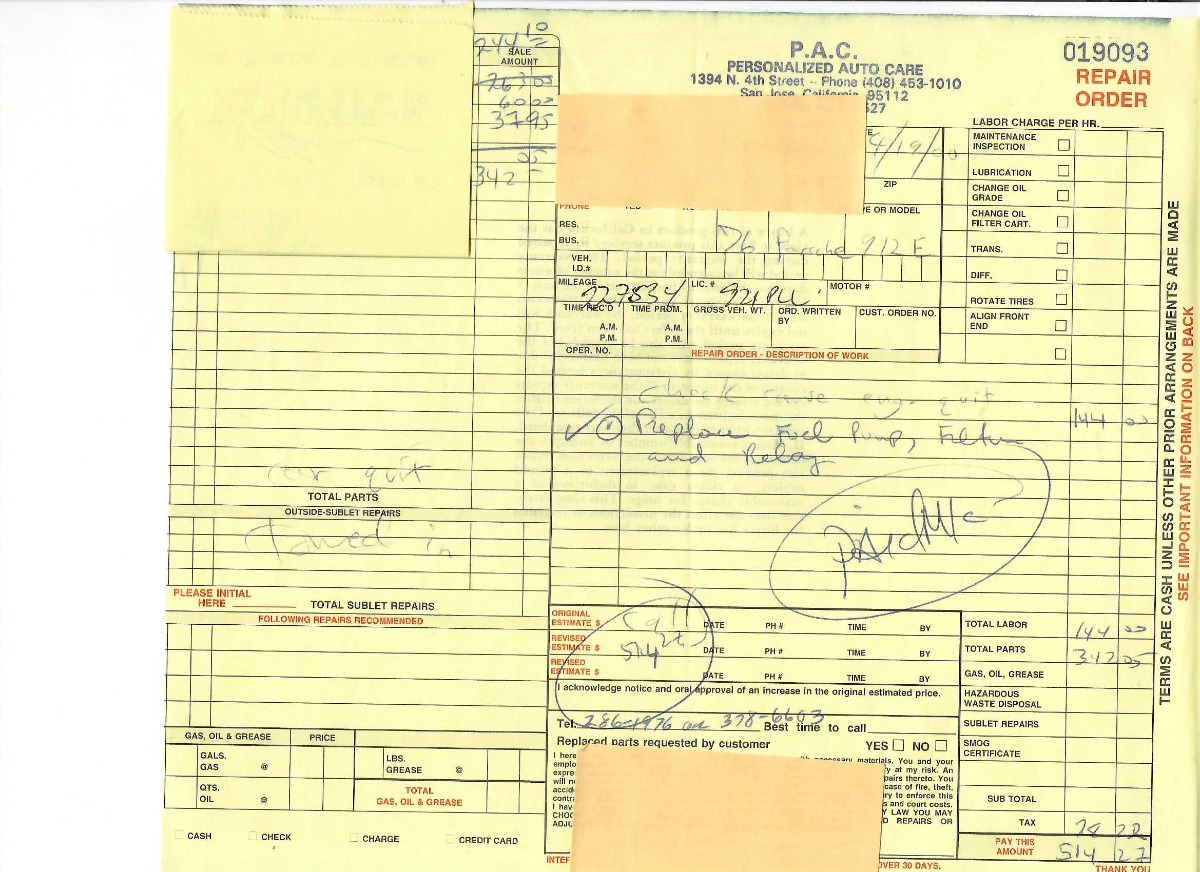 244 10
SALE
AMOUNT
263 05
60 00
37 95
342 05
P.A.C.
PERSONALIZED AUTO CARE
1394 N. 4th Street - Phone (408) 453-1010
San Jose, California 95112
527
019093
REPAIR
ORDER
LABOR CHARGE PER HR.
4/19/00
ZIP
PHONE
E OR MODEL
RES.
BUS.
76 Porsche 912 E
VEH.
I.D.#
MILEAGE 227534 LIC. # 921 PLL MOTOR #
TIME REC'D TIME PROM. GROSS VEH. WT. ORD. WRITTEN BY CUST. ORDER NO.
A.M. A.M.
P.M. P.M.
OPER. NO. REPAIR ORDER - DESCRIPTION OF WORK
MAINTENANCE
INSPECTION
LUBRICATION
CHANGE OIL
GRADE
CHANGE OIL
FILTER CART.
TRANS.
DIFF.
ROTATE TIRES
ALIGN FRONT
END
Check cause eng. quit
144 00
Replace Fuel Pump, Filter
and Relay
car quit
TOTAL PARTS
OUTSIDE-SUBLET REPAIRS
Towed in
PLEASE INITIAL
HERE
TOTAL SUBLET REPAIRS
FOLLOWING REPAIRS RECOMMENDED
ORIGINAL
ESTIMATE $ DATE PH # TIME BY
REVISED
ESTIMATE $ 514 27 DATE PH # TIME BY
REVISED
ESTIMATE $ DATE PH # TIME BY
I acknowledge notice and oral approval of an increase in the original estimated price.
Tel. 286-1976 or 378-6603 Best time to call
Replaced parts requested by customer YES NO
I here
emplo
expre
will n
accid
contr
I hav
CHOO
ADJU
necessary materials. You and your
y at my risk. An
pairs thereto. You
case of fire, theft,
ry to enforce this
s and court costs.
Y LAW YOU MAY
D REPAIRS OR
INTER
OVER 30 DAYS.
TOTAL LABOR 144 00
TOTAL PARTS 342 05
GAS, OIL, GREASE
HAZARDOUS
WASTE DISPOSAL
SUBLET REPAIRS
SMOG
CERTIFICATE
SUB TOTAL
TAX 28 22
PAY THIS
AMOUNT 514 27
THANK YOU
GAS, OIL & GREASE PRICE
GALS.
GAS @
LBS.
GREASE @
QTS.
OIL @
TOTAL
GAS, OIL & GREASE
CASH CHECK CHARGE CREDIT CARD
TERMS ARE CASH UNLESS OTHER PRIOR ARRANGEMENTS ARE MADE
SEE IMPORTANT INFORMATION ON BACK